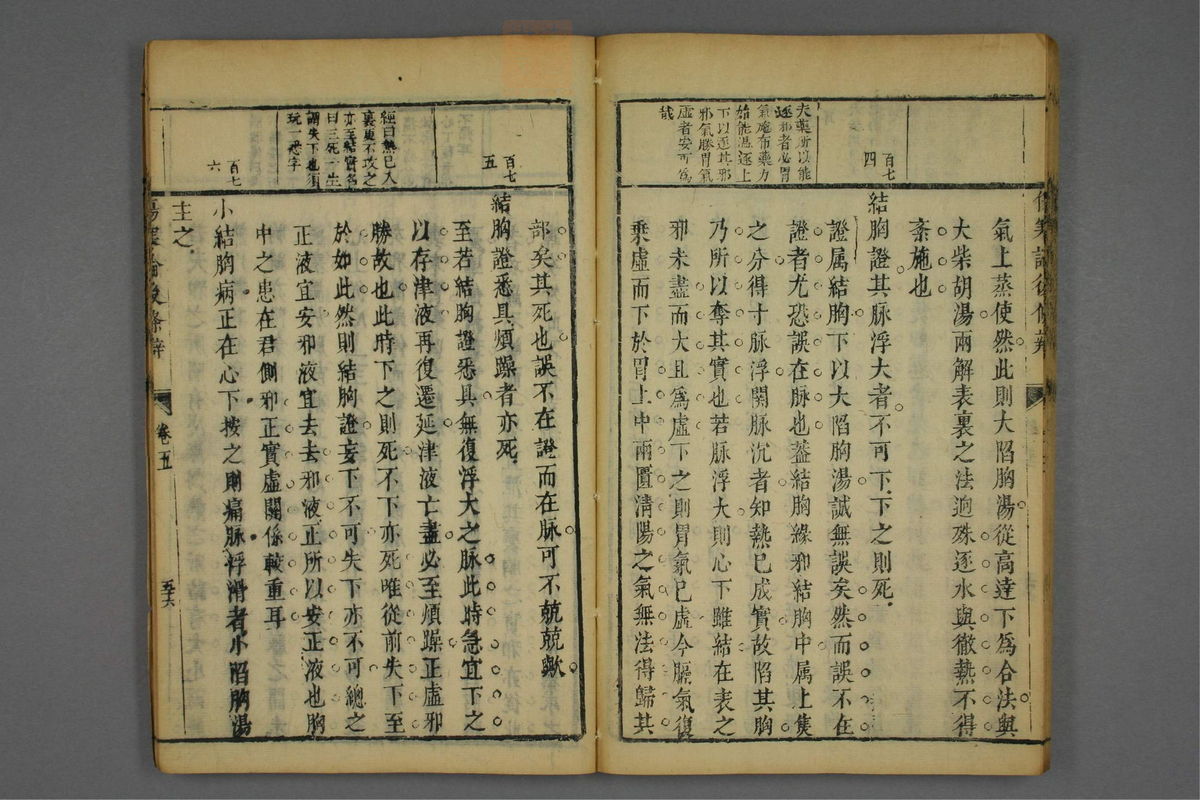 夫藥所以能
逐邪者必胃
氣施布藥力
始能溫逐上
下以逐其邪
邪氣勝胃氣
虛者安可爲
哉
百七
四
氣上蒸使然此則大陷胸湯從高達下爲合法與
大柴胡湯兩解表裏之法迥殊逐水與徹熱不得
紊施也
結胸證其脉浮大者不可下下之則死
證属結胸下以大陷胸湯誠無誤矣然而誤不在
證者尤恐誤在脉也蓋結胸緣邪結胸中属上焦
之分得寸脉浮關脉沉者知熱已成實故陷其胸
乃所以奪其實也若脉浮大則心下雖結在表之
邪未盡而大且爲虛下之則胃氣已虛今膈氣復
乘虛而下於胃上中兩匱淸陽之氣無法得歸其
百七
五
經曰熱已入
裏更不攻之
亦至結實名
曰三死一生
謂失下也須
玩一悉字
百七
六
部矣其死也誤不在證而在脉可不兢兢歟
結胸證悉具煩躁者亦死
至若結胸證悉具無復浮大之脉此時急宜下之
以存津液再復遷延津液亡盡必至煩躁正虛邪
勝故也此時下之則死不下亦死唯從前失下至
於如此然則結胸證妄下不可失下亦不可總之
正液宜安邪液宜去去邪液正所以安正液也胸
中之患在君側邪正實虛關係較重耳
小結胸病正在心下按之則痛脉浮滑者小陷胸湯
主之
傷寒論後條辯
卷五
五十六